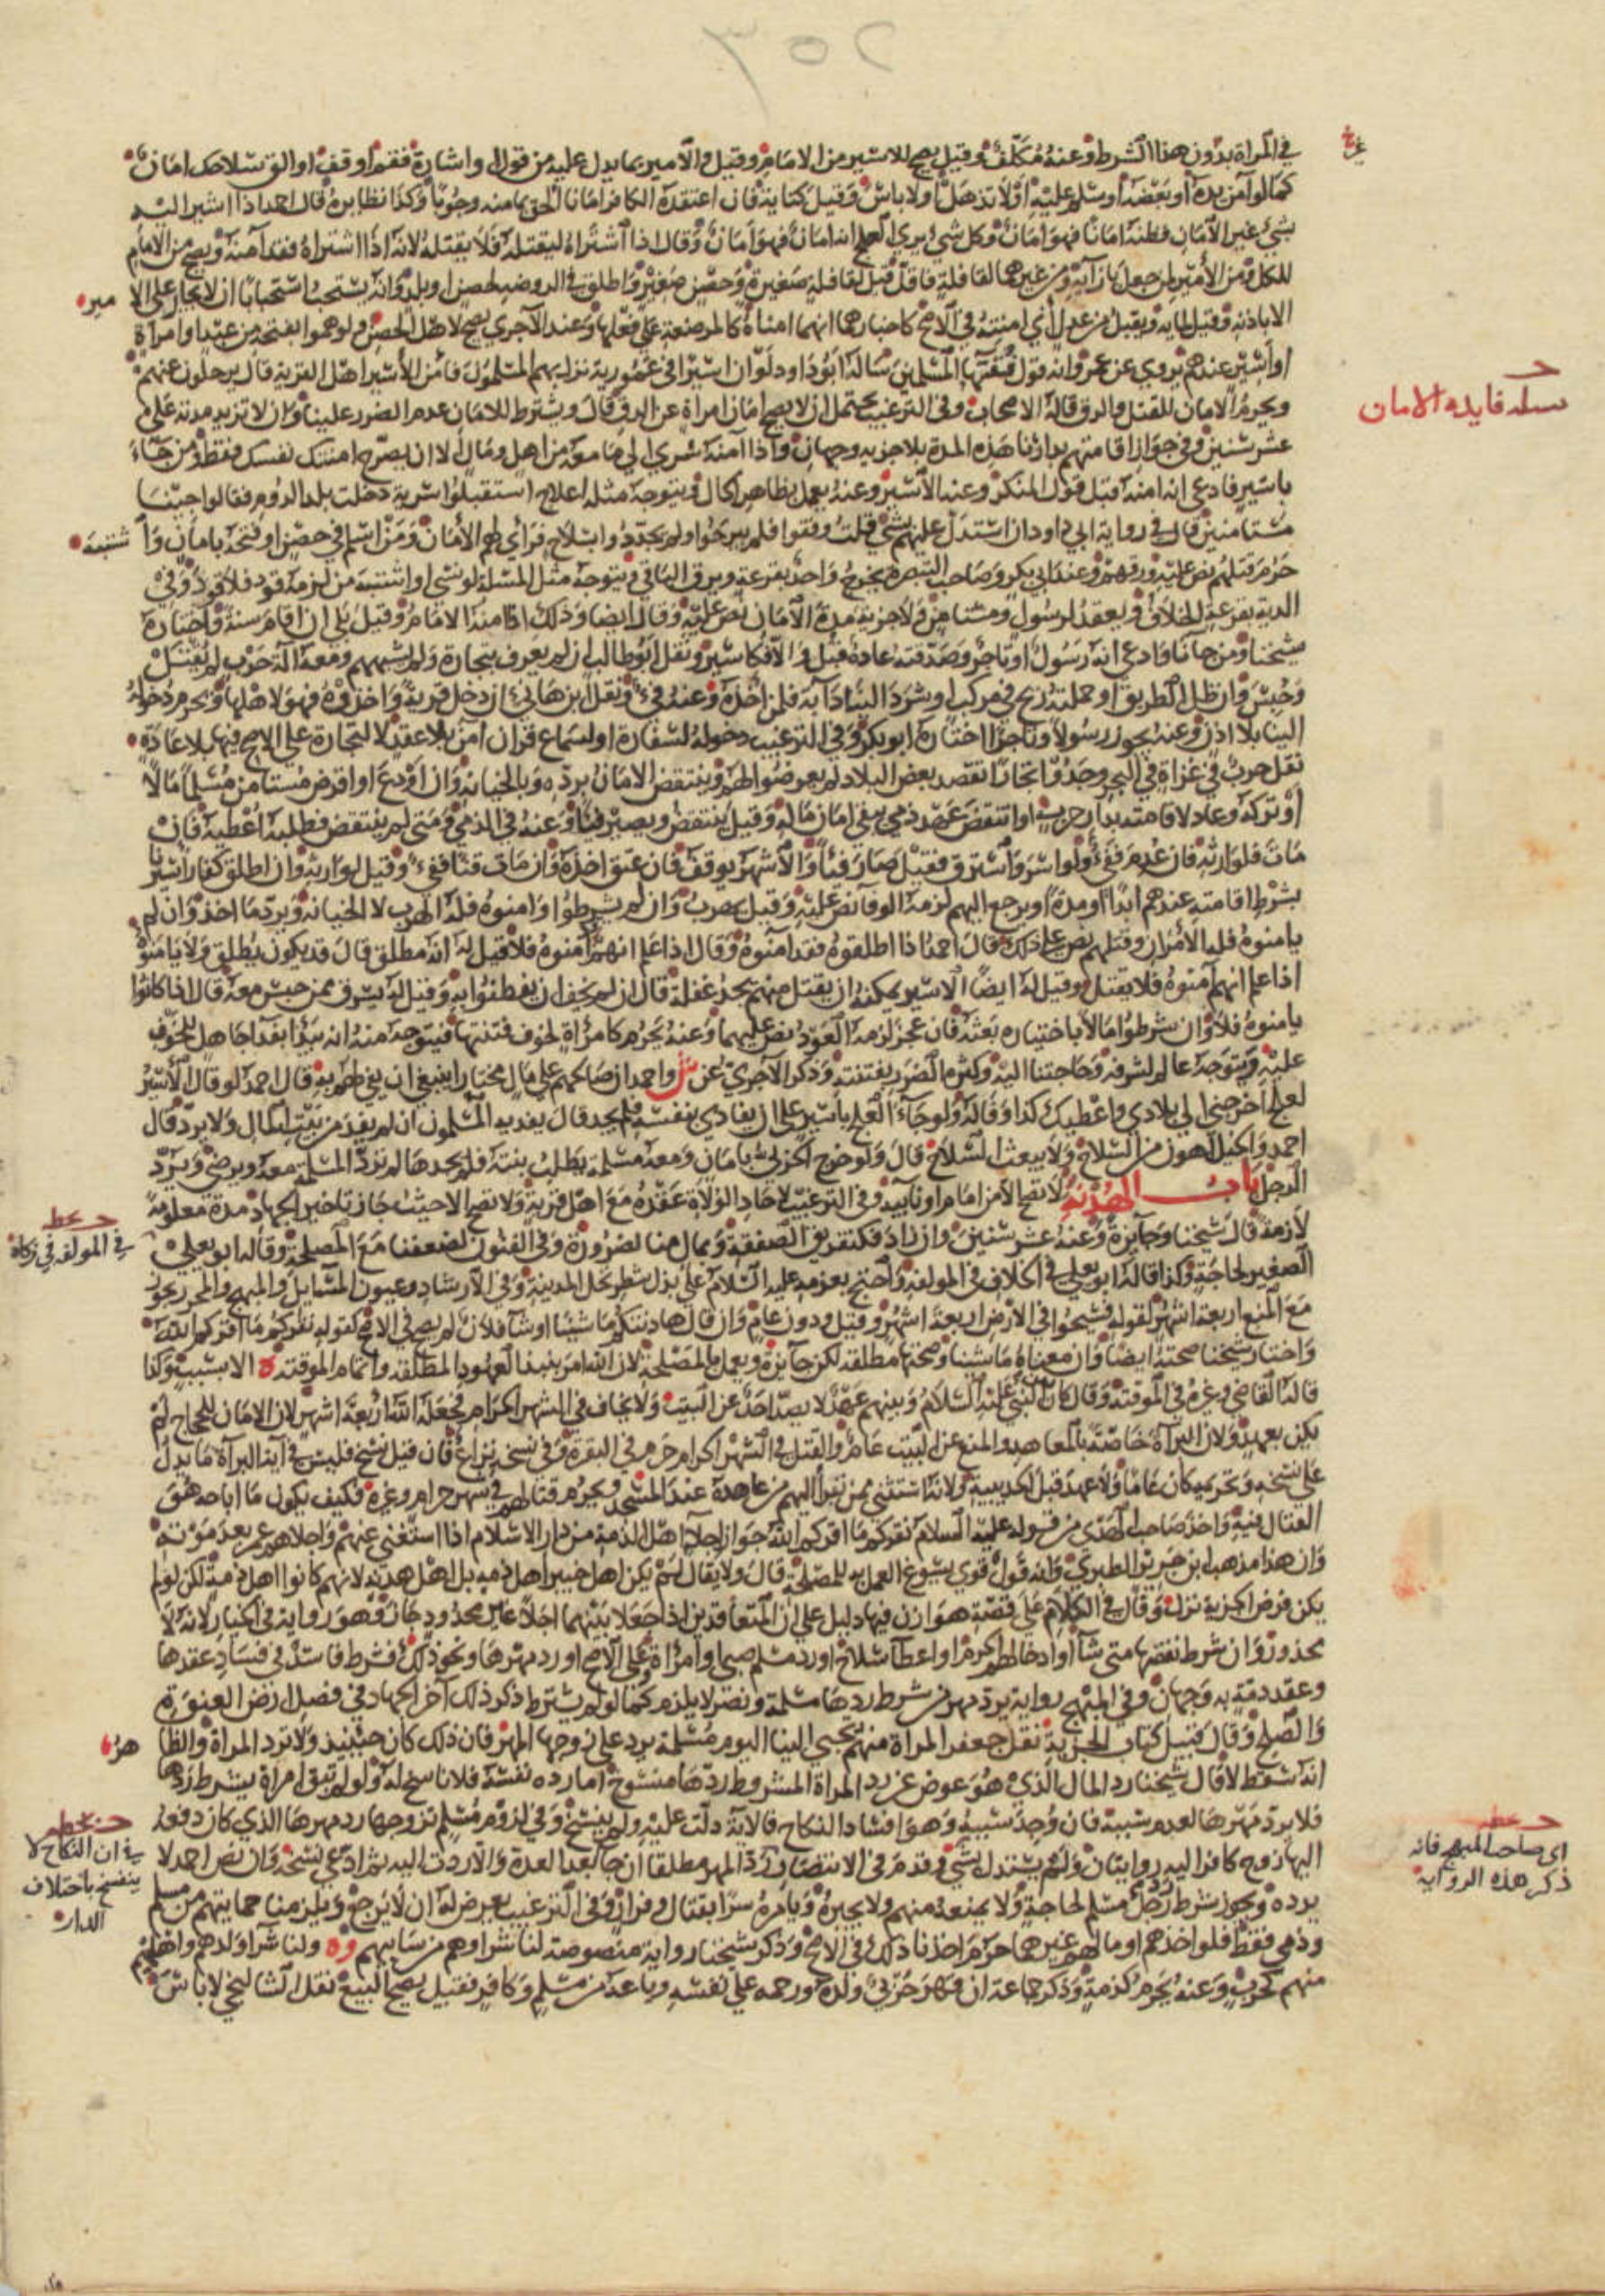 ٣٥٢
في المرأة بدون هذا الشرط وعنه مكلف وقيل يصح للأسير من الامام وقيل والأمير بما يدل عليه من قول واشارة فقم او قف او الق سلاحك امان
كما لو أمن يده أو بعضه أو سلم عليه أو لا تذهل أو لا باس وقيل كناية فان اعتقده الكافر امانا ألحق بمأمنه وجوبا وكذا نظايره قال احمد اذا اشير اليه
بشيء غير الأمان فظنه امانا فهو امان وكل شيء يرى العلج انه امان فهو امان وقال اذا اشتراه ليقتله فلا يقتله لانه اذا اشتراه فقد أمنه ويصح من الامام
للكل ومن الأمير لمن جعل بازآيه ومن غيرهما لقافلة فاقل قيل لقافلة صغيرة وحصن صغير واطلق في الروضه لحصن او بلد وانه يستحب استحبابا ان لا يجار على الا
مير
الا باذنه وقيل لمايه ويقبل من عدل أي امنته في الأصح كاخبارهما انهما امناه كالمرضعة على فعلها وعند الآجري يصح لاهل الحصن ولو هموا بفتحه من عبد او امرأة
او اسير عندهم يروى عن عمر وانه قول فقهاء المسلمين سأله ابو داود لو ان اسيرا في عمورية نزل بهم المسلمون فأمن الأسير اهل القرية قال يرحلون عنهم
ويحرم الامان للقتل والرق قاله الاصحاب وفي الترغيب يحتمل ان لا يصح امان امراة عن الرق قال ويشترط للامان عدم الضرر علينا وان لا تزيد مدته على
مسله فايده الامان
عشر سنين وفي جواز اقامتهم بدارنا هذه المدة بلا جزيه وجهان واذا أمنه سرى الى ما معه من اهل ومال الا ان يصرح امنتك نفسك فقط ومن جآء
باسير فادعى انه امنه قبل قول المنكر وعنه الأسير وعنه يعمل بظاهر الحال ويتوجه مثله اعلاج استقبلوا سرية دخلت بلد الروم فقالوا جئنا
مستامنين قال في رواية ابي داود ان استدل عليهم بشيء قلت وقفوا فلم يبرحوا ولم يجردوا بسلاح فرأى لهم الأمان ومن اسلم في حصن او فتحه بامان وا
شتبه
حرم قتلهم نص عليه ورقهم وعند ابي بكر وصاحب التبصرة يخرج واحد بقرعة ويرق الباقي ويتوجه مثل المسلة لو نسي او اشتبه من لزمه قود فلا قود وفي
الدية بقرعة الخلاف ويعقد لرسول ومستامن ولا جزية مدة الأمان نص عليه وقال ايضا وذلك اذا امنه الامام وقيل بلى ان اقام سنة واختاره
شيخنا ومن جآنا وادعى انه رسول او تاجر وصدقته عادة قبل والا فكاسير ونقل ابو طالب ان لم يعرف بتجارة ولم يشبههم ومعه آلة حرب لم يقبل
وحبس وان ظل الطريق او حملته ريح في مركب او شرد الينا دآبة فلمن اخذه وعنه فيء ونقل ابن هاني ان دخل قرية واخذوه فهو لاهلها ويحرم دخوله
الينا بلا اذن وعنه يجوز رسولا وتاجرا اختاره ابو بكر وفي الترغيب دخوله لسفارة او لسماع قران امن بلا عقد لا لتجارة على الاصح فيها بلا عادة
نقل حرب في غزاة في البحر وجدوا تجارا تقصد بعض البلاد لم يعرضوا لهم وينتقض الامان برده وبالخيانه وان اودع او اقرض مستامن مسلما مالا
او تركه وعاد لاقامته بدار حرب او انتقض عهد ذمي بقي امان ماله وقيل ينتقض ويصير فيئا وعنه في الذمي ومتى لم ينتقض فطلبه اعطيه فان
مات فلوارثه فان عدم ففيء ولو اسر واسترق فقيل صار فيئا والأشهر يوقف فان عتق اخذه وان مات قنا ففيء وقيل لوارثه وان اطلق كفار اسيرا
بشرط اقامته عندهم ابدا او مدة او يرجع اليهم لزمه الوفآ نص عليه وقيل يهرب وان لم يشرطوا وامنوه فله الهرب لا الخيانه ويرد ما اخذ وان لم
يامنوه فله الأمران وقتلهم نص على ذلك قال احمد اذا اطلقوه فقد امنوه وقال اذا علم انهم أمنوه فلا قيل له انه مطلق قال قد يكون يطلق ولا يامنوه
اذا علم انهم امنوه فلا يقتل وقيل له ايضا الاسير يمكنه ان يقتل منهم يجد غفلة قال ان لم يخف ان يفطنوا به وقيل له يسرق ممن حبس معه قال اذا كانوا
يامنوه فلا وان شرطوا مالا باختياره بعثه فان عجز لزمه العود نص عليهما وعنه يحرم كامرأة لخوف فتنتها فيتوجه منه انه يبدأ بفدآ جاهل للخوف
عليه ويتوجه عالم لشرفه وحاجتنا اليه وكثرة الضرر بفتنته وذكر الآجري عن ش واحمد ان صالحهم على مال مختارا ينبغي ان يفي لهم به قال احمد لو قال الأسير
لعلج اخرجني الى بلادي واعطيك كذا وفا له ولو جآء العلج باسير على ان يفادي بنفسه فلم يجد قال يفديه المسلمون ان لم يفد من بيت المال ولا يرد قال
احمد والخيل اهون من السلاح ولا يبعث السلاح قال ولو خرج الحربي بامان ومعه مسلمة يطلب بنته فلم يجدها لم ترد المسلمة معه ويرضى ويرد
الرجل باب الهدنة لا تصح الا من امام او نآيبه وفي الترغيب لآحاد الولاة عقده مع اهل قرية ولا تصح الا حيث جاز تاخير الجهاد مدة معلومة
حـ بخطه
في المولفه في زكاة
لازمة قال شيخنا وجآيزة وعنه عشر سنين وان زاد فكتفريق الصفقة وبمال منا لضرورة وفي الفنون لضعفنا مع المصلحة وقاله ابو يعلى
الصغير لحاجة وكذا قاله ابو يعلى في الخلاف في المولفة واحتج بعزمه عليه السلام على بذل شطر نخل المدينة وفي الارشاد وعيون المسايل والمبهج والمحرر يجوز
مع المنع اربعة اشهر لقوله فسيحوا في الأرض اربعة اشهر وقيل ودون عام وان قال هادنتكم ما شئنا او شآ فلان لم يصح في الاصح كقوله نقركم ما أقركم الله
واختار شيخنا صحته ايضا وان معناه ما شئنا وصحتها مطلقه لكن جآيزة ويعمل بالمصلحة لان الله امر بنبذ العهود المطلقه واتمام الموقته ه الا بسبب وكذا
قاله القاضي وغيره في الموقتة وقال كان النبي عليه السلام وبينهم عهد لا يصد احد عن البيت ولا يخاف في الشهر الحرام فجعله الله اربعة اشهر لان الامان للحجاج لم
يكن بعهد ولان البرآة خاصة بالمعاهد والمنع عن البيت عام والقتل في الشهر الحرام حرم في البقرة وفي نسخه نزاع فان قيل نسخ فليس في آية البرآة ما يدل
على نسخه وتحريمه كان عاما ولا عهد قبل الحديبية ولانه استثنى ممن تبرأ اليهم من عاهده عند المسجد ويحرم قتالهم في شهر حرام وغيره فكيف يكون ما اباحه هو
القتال فيه واخذ صاحب الهدي من قوله عليه السلام نقركم ما اقركم الله جواز اجلآ اهل الذمة من دار الاسلام اذا استغني عنهم واجلاهم عمر بعد موته
وان هذا مذهب ابن جرير الطبري وانه قول قوي يسوغ العمل به للمصلحة قال ولا يقال لم يكن اهل خيبر اهل ذمه بل اهل هدنه لانهم كانوا اهل ذمة لكن لم
يكن فرض الجزية نزل وقال في الكلام على قصة هوازن فيها دليل على ان المتعاقدين اذا جعلا بينهما اجلا غير محدود جاز وهو رواية في الخيار لانه لا
محذور وان شرط نقضها متى شآ او ادخالهم الحرم او اعطآ سلاح او رد مسلم صبي او امرأة على الأصح او رد مهرها ونحو ذلك فشرط فاسد وفي فساد عقدها
وعقد ذمة به وجهان وفي المبهج رواية يرد مهر من شرط ردها مسلمة ونصر لا يلزم كما لو لم يشترط ذكر ذلك آخر الجهاد في فصل ارض العنوة
والصلح وقال قبيل كتاب الجزية نقل جعفر المراة منهم تجيي الينا اليوم مسلمة يرد على زوجها المهر فان ذلك كان حينئذ ولا ترد المراة والظا
هر
انه سقط لا قال شيخنا رد المال الذي هو عوض عن رد المراة المشروط ردها منسوخ اما رده نفسه فلا ناسخ له ولو لم تبق امراة يشترط ردها
فلا يرد مهرها لعدم سببه فان وجد سببه وهو افساد النكاح فالآية دلت عليه ولم ينسخ وفي لزوم مسلم تزوجها رد مهرها الذي كان دفعه
حـ بخطه
في ان النكاح لا
ينفسخ باختلاف
الدار
اليها زوج كافر اليه روايتان ولم يستدل بشيء وقدم في الانتصار رد المهر مطلقا ان جآ بعد العدة والا ردت اليه ثم ادعى نسخه وان نص احمد لا
حـ بخطه
اي صاحب المبهج فانه
ذكر هذه الرواية
يرده ويجوز شرط رد رجل مسلم لحاجة ولا يمنعه منهم ولا يجبره ويامره سرا بقتال وفرار وفي الترغيب يعرض له ان لا يرجع ويلزمنا حمايتهم من مسلم
وذمي فقط فلو اخذهم او مالهم غيرهما حرم اخذنا ذلك في الاصح وذكر شيخنا رواية منصوصة لنا شراوهم من سابيهم وه ولنا شرآ ولدهم واهليهم
منهم كحرب وعنه يحرم كذمة وذكر جماعة ان قهر حربي ولده ورحمه على نفسه وباعه من مسلم وكافر فقيل يصح البيع نقل الشالنجي لا باس